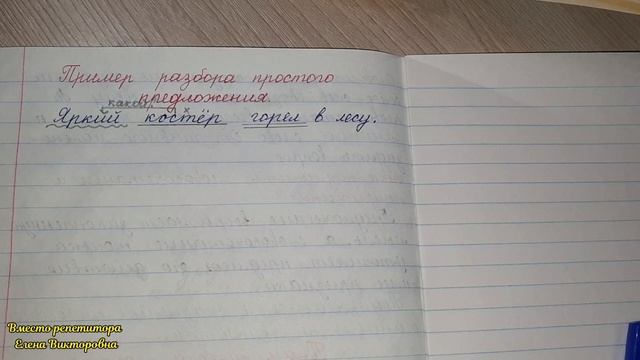 Пример разбора простого
предложения.
какой?
Яркий костёр горел в лесу.
Вместо репетитора
Елена Викторовна